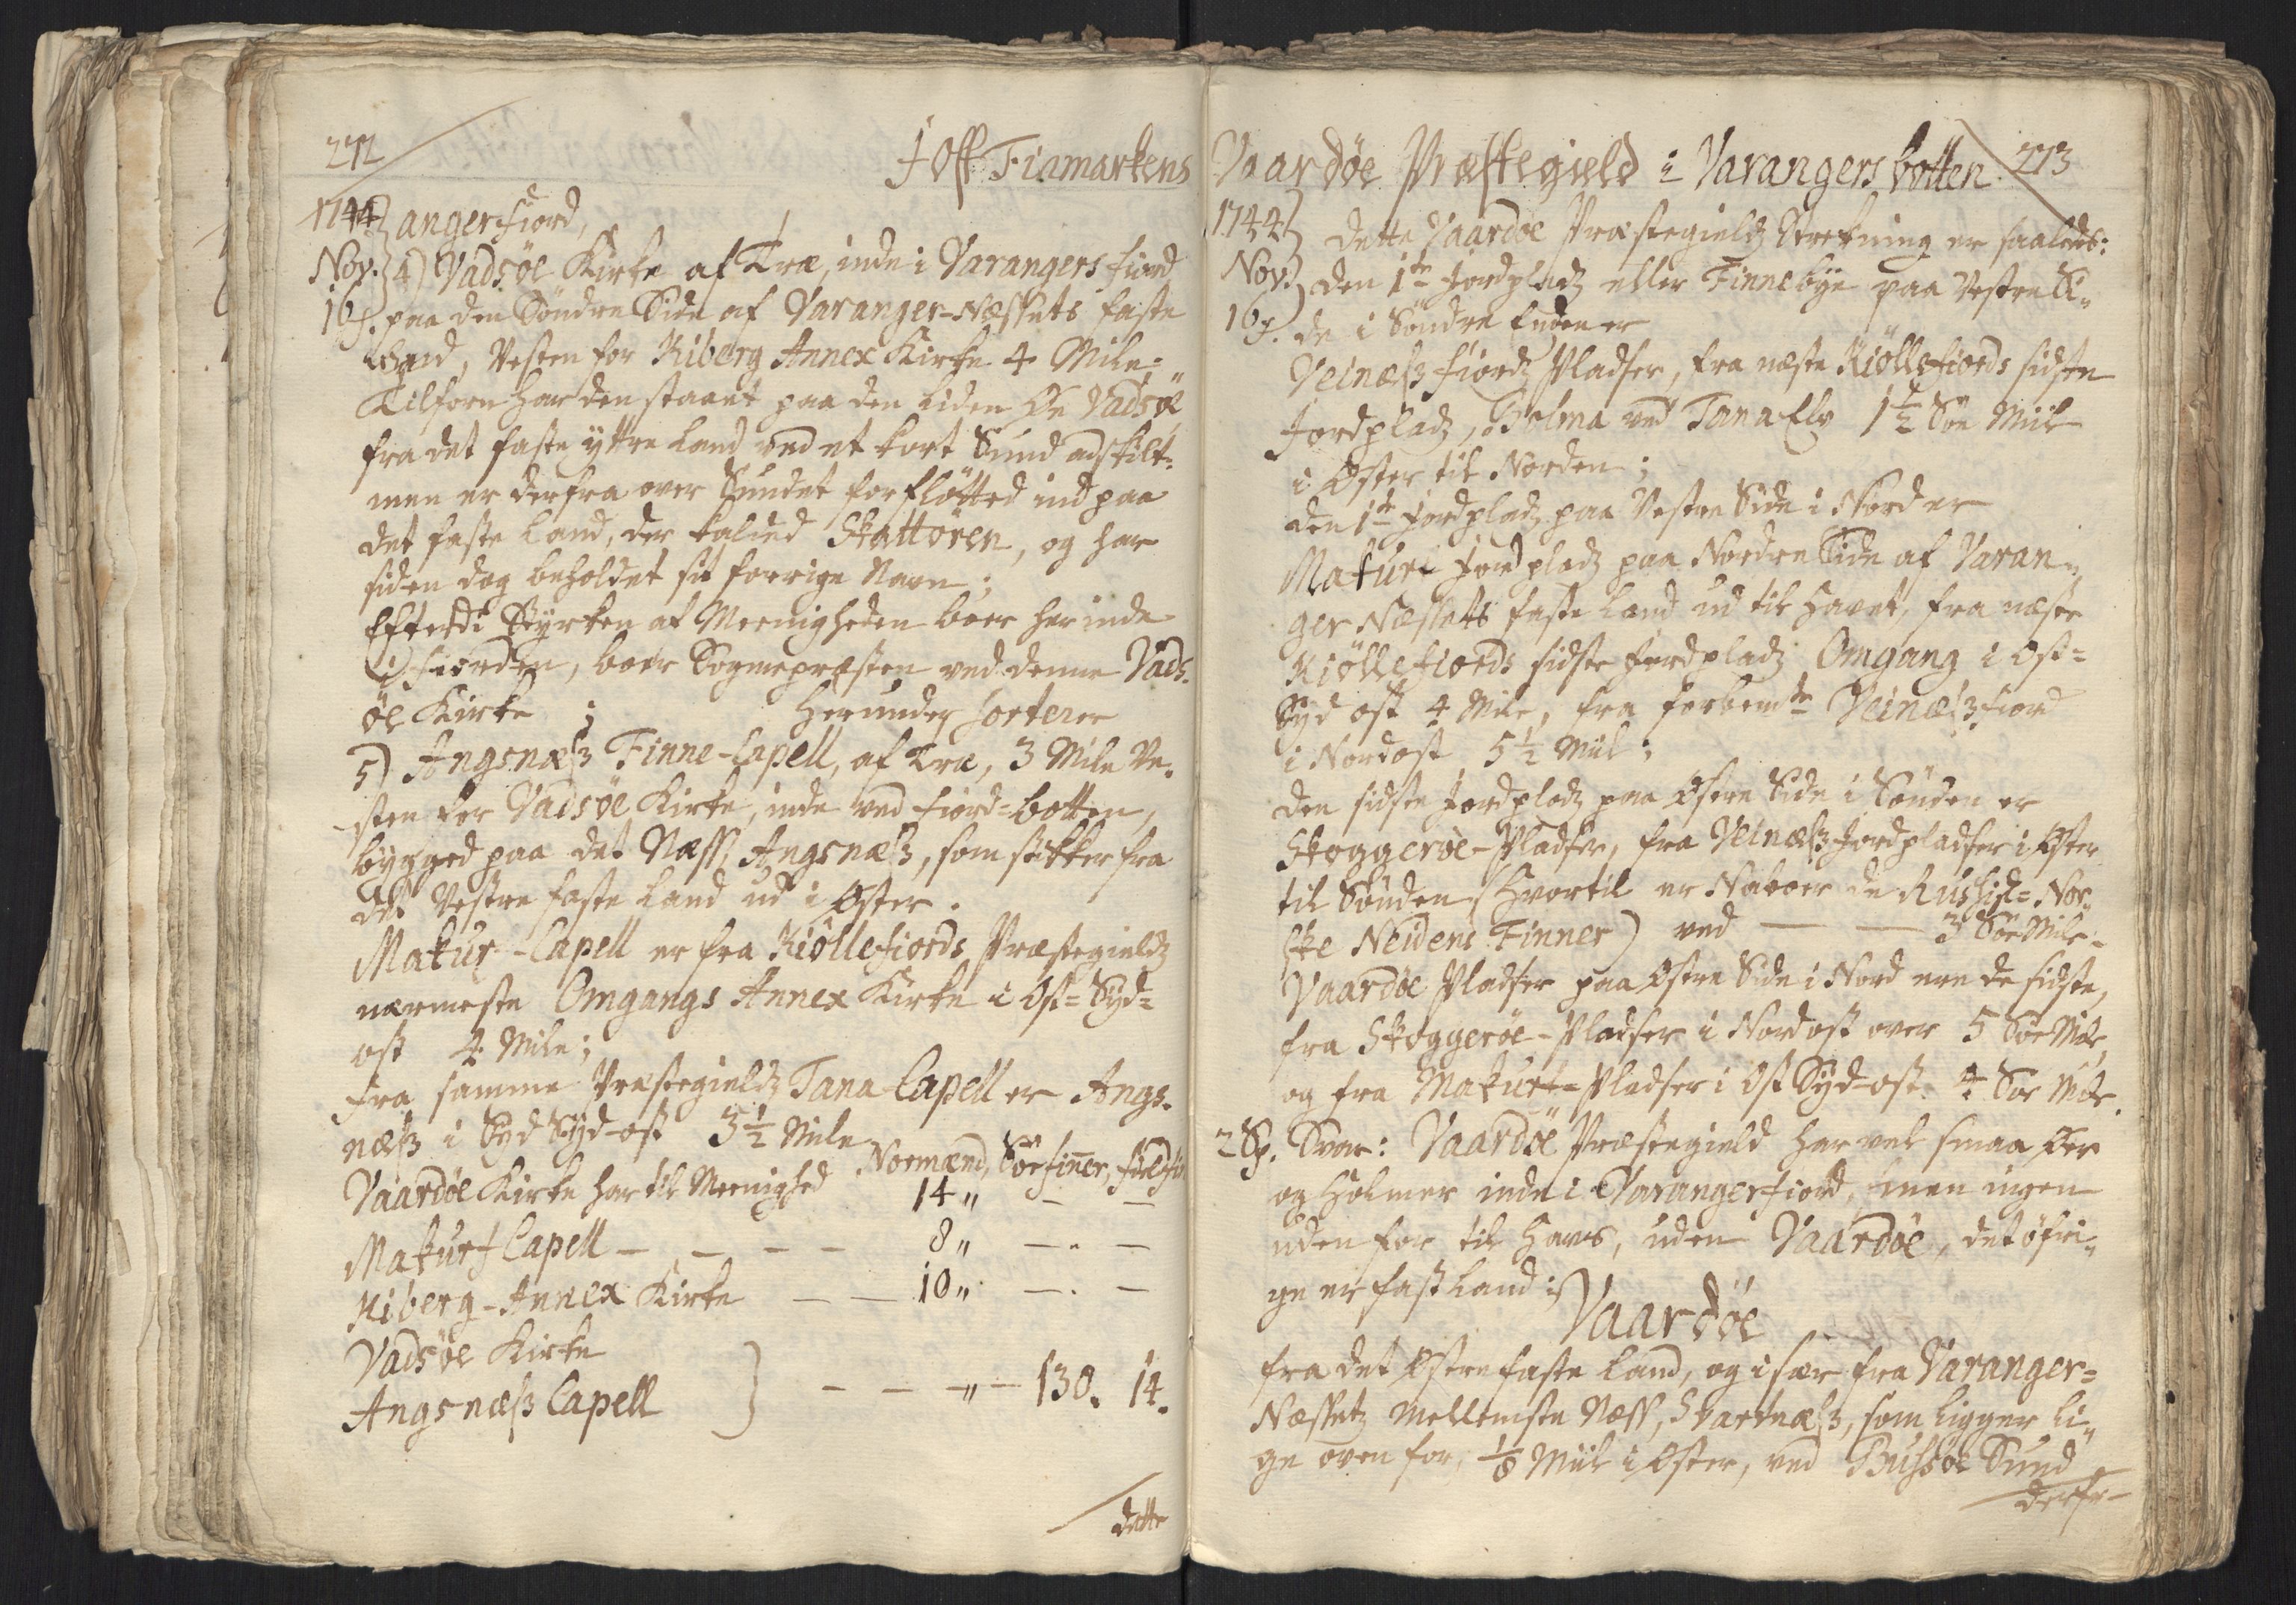 272
I Ost Finmarkens
1744 angerfiord,
Nov. 4) Vadsöe Kirke af Træ, inde i Varangers fiord
16 f. paa den Söndre Side af Varanger-Næssets faste
Land, Vesten for Kiberg Annex Kirke 4 Mile;
Tilforn har den staaet paa den liden Öe Vadsöe
fra det faste yttre land ved et kort Sund adskilt,
men er derfra over Sundet forflötted ind paa
det faste Land, der kalded Skattören, og har
siden dog beholdet sit forrige Navn;
Efterdi Styrken af Meenigheden boer her inde
i fiorden, boer Sognepræsten ved denne Vads-
öe Kirke ; Herunder sorterer
5) Angsnæss Finne-Capell, af Træ, 3 Mile Ve-
sten for Vadsöe Kirke, inde ved fiord-botten,
bygged paa det Næss, Angsnæss, som stikker fra
det Vestre faste Land ud i Öster.
Makur-Capell er fra Kiöllefiords Præstegieldz
nærmeste Omgangs Annex Kirke i Ost-Syd-
ost 4 Mile;
fra samme Præstegieldz Tana Capell er Angs-
næss i Syd Syd-ost 3½ Mile
Normænd, Söefinner, fieldfin
Vaardöe Kirke har til Meenighed 14 „ — —
Makurs Capell — — — — 8 „ — . —
Kiberg-Annex Kirke — — 10 „ — . —
Vadsöe Kirke
Angsnæss Capell } — — — „ — 130. 14.
dette
Vaardöe Præstegield i Varangers botten 273
1744 Dette Vaardöe Præstegieldz Strekning er saaledes:
Nov. den 1te Jordpladz eller Finnebye paa Vestre Si-
16 f. de i Söndre Enden er
Veinæss fiordz Pladser, fra næste Kiöllefiords sidste
Jordpladz, Golma ved Tana Elv 1½ Söe Miil
i Öster til Norden;
den 1te Jordpladz paa Vestre Side i Nord er
Makur Jordpladz paa Nordre Side af Varan-
ger Næssets faste Land ud til Havet, fra næste
Kiöllefiords sidste Jordpladz Omgang i Ost-
Syd ost 4 Mile, fra forbemte Veinæss fiord
i Nordost 5½ Miil;
den sidste Jordpladz paa Östre Side i Sönden er
Skoggeröe-Pladser, fra Veinæss Jordpladser i Öster
til Sönden (Hvortil er Naboer de Russisk-Nor-
ske Neidens Finner) ved — — 3 Söe Mile.
Vaardöe Pladser paa Östre Side i Nord ere de sidste,
fra Skoggeröe-Pladser i Nordost over 5 Söe Mile,
og fra Makurs-Pladser i Ost Syd-ost 4 Söe Mile.
2 Sp. Svar: Vaardöe Præstegield har vel smaa Öer
og Holmer inde i Varangerfiord, men ingen
uden for til Havs, uden Vaardöe, det öfri-
ge er fast Land;
Vaardöe
fra det Östre faste Land, og især fra Varanger-
Næssetz mellemste Næss, Svartnæss, som ligger li-
ge oven for, ⅛ Miil i Öster, ved Bussöe Sund
derfra